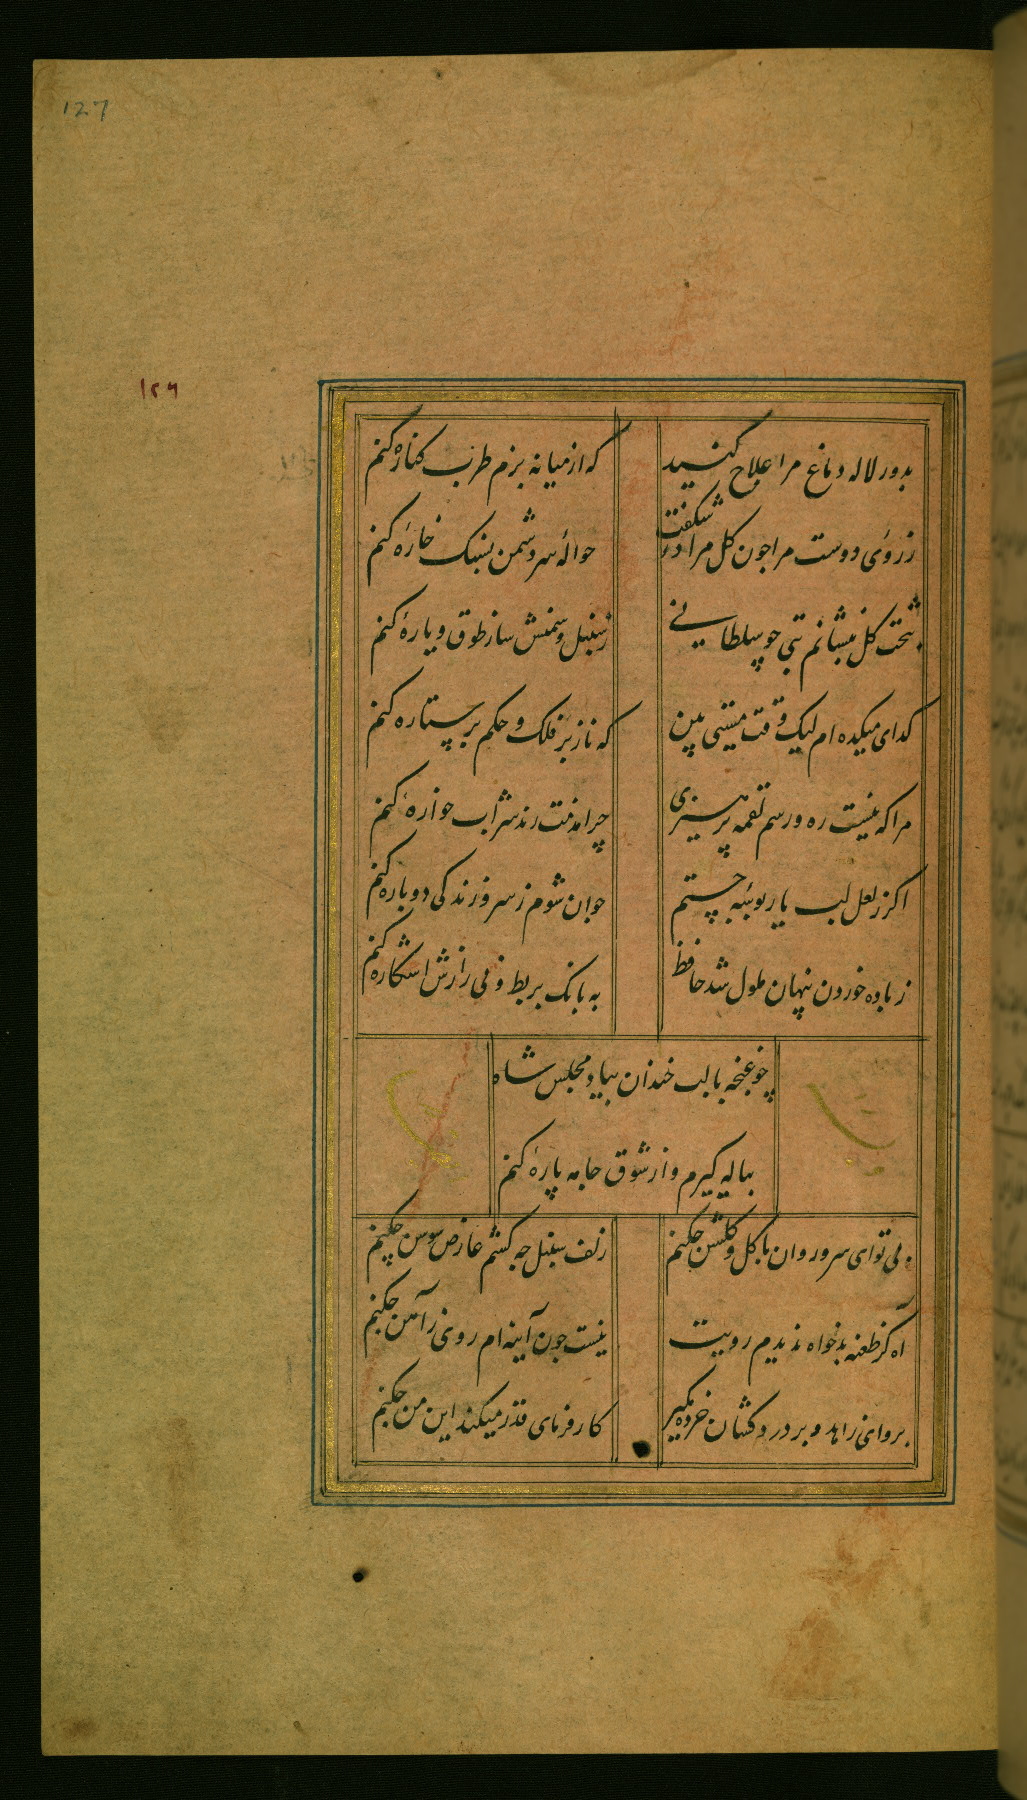 127
۱۲۶
بدور لاله دماغ مرا علاج کنید
که از میانه بزم طرب کناره کنم
زروی دوست مرا جون کل مراد شکفت
حوالهٔ سر دشمن بسنک خاره کنم
بتخت کل بنشانم بتی جو سلطانی
ز سنبل و سمنش ساز طوق و یاره کنم
کدای میکده ام لیک وقت مستی بین
که ناز بر فلک و حکم بر ستاره کنم
مرا که نیست ره و رسم لقمه پرهیزی
چرا مذمت رند شراب خواره کنم
اکر ز لعل لب یار بوسئه چستم
جوان شوم ز سر و زندکی دوباره کنم
ز باده خوردن پنهان ملول شد حافظ
به بانک بربط و نی رازش اشکاره کنم
چو غنچه با لب خندان بیاد مجلس شاه
پیاله کیرم و از شوق جامه پاره کنم
بی تو ای سرو روان با کل و کلشن جکنم
زلف سنبل جه کشم عارض سوسن چکنم
آه کز طعنه بدخواه ندیدم رویت
نیست جون آینه ام روی ز آهن جکنم
برو ای زاهد و بر درد کشان خرده مکیر
کارفرمای قدر میکند این من جکنم